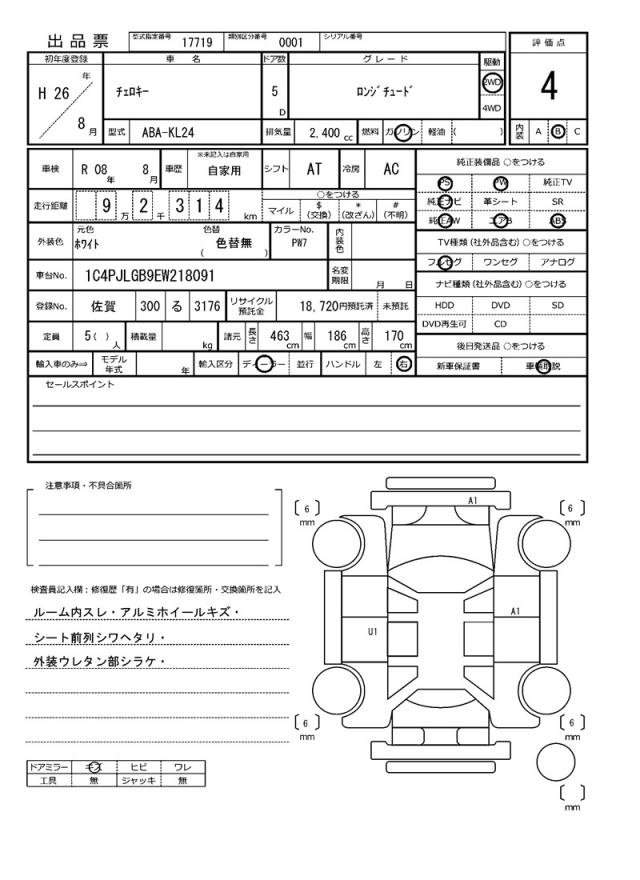 出品票 型式指定番号 17719 類別区分番号 0001 シリアル番号
初年度登録 車名 ドア数 グレード 駆動 評価点
H 26 年 8 月 チェロキー 5 D ロンジチュード 2WD 4WD 4
型式 ABA-KL24 排気量 2,400 cc 燃料 ガソリン 軽油 ( ) 内装 A B C
車検 R 08 年 8 月 車歴 ※未記入は自家用 自家用 シフト AT 冷房 AC
走行距離 9 万 2 千 3 1 4 km ○をつける マイル $ (交換) * (改ざん) # (不明)
外装色 元色 ホワイト 色替 ( 色替無 ) カラーNo. PW7 内装色
車台No. 1C4PJLGB9EW218091 名変期限 月 日
登録No. 佐賀 300 る 3176 リサイクル預託金 18,720円預託済 未預託
定員 5( ) 人 積載量 kg 諸元 長さ 463 cm 幅 186 cm 高さ 170 cm
輸入車のみ⇒ モデル年式 年 輸入区分 ディーラー 並行 ハンドル 左 右
純正装備品 ○をつける
PS PW 純正TV
純正ナビ 革シート SR
純正AW エアB ABS
TV種類 (社外品含む) ○をつける
フルセグ ワンセグ アナログ
ナビ種類 (社外品含む) ○をつける
HDD DVD SD
DVD再生可 CD
後日発送品 ○をつける
新車保証書 車輌取説
セールスポイント
注意事項・不具合箇所
検査員記入欄：修復歴「有」の場合は修復箇所・交換箇所を記入
ルーム内スレ・アルミホイールキズ・
シート前列シワヘタリ・
外装ウレタン部シラケ・
ドアミラー キズ ヒビ ワレ
工具 無 ジャッキ 無
A1
[ 6 ] mm
[ 6 ] mm
U1
A1
[ 6 ] mm
[ 6 ] mm
[ ] mm